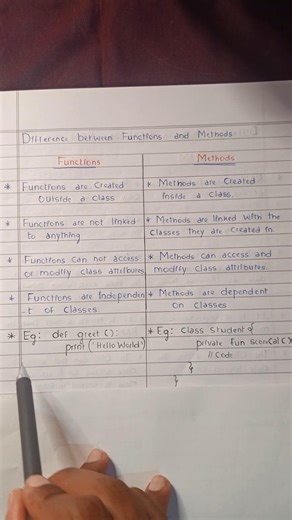 Difference between Functions and Methods
Functions
Methods
* Functions are created
outside a class
* Methods are created
inside a class.
* Functions are not linked
to anything
* Methods are linked with the
classes they are created in.
* Functions can not access
or modify class attributes
* Methods can access and
modify class attributes.
* Functions are independen
-t of classes.
* Methods are dependent
on classes
* Eg: def greet ():
print ('Hello World')
* Eg: class Student {
private fun scoreCal()
// Code
}
}